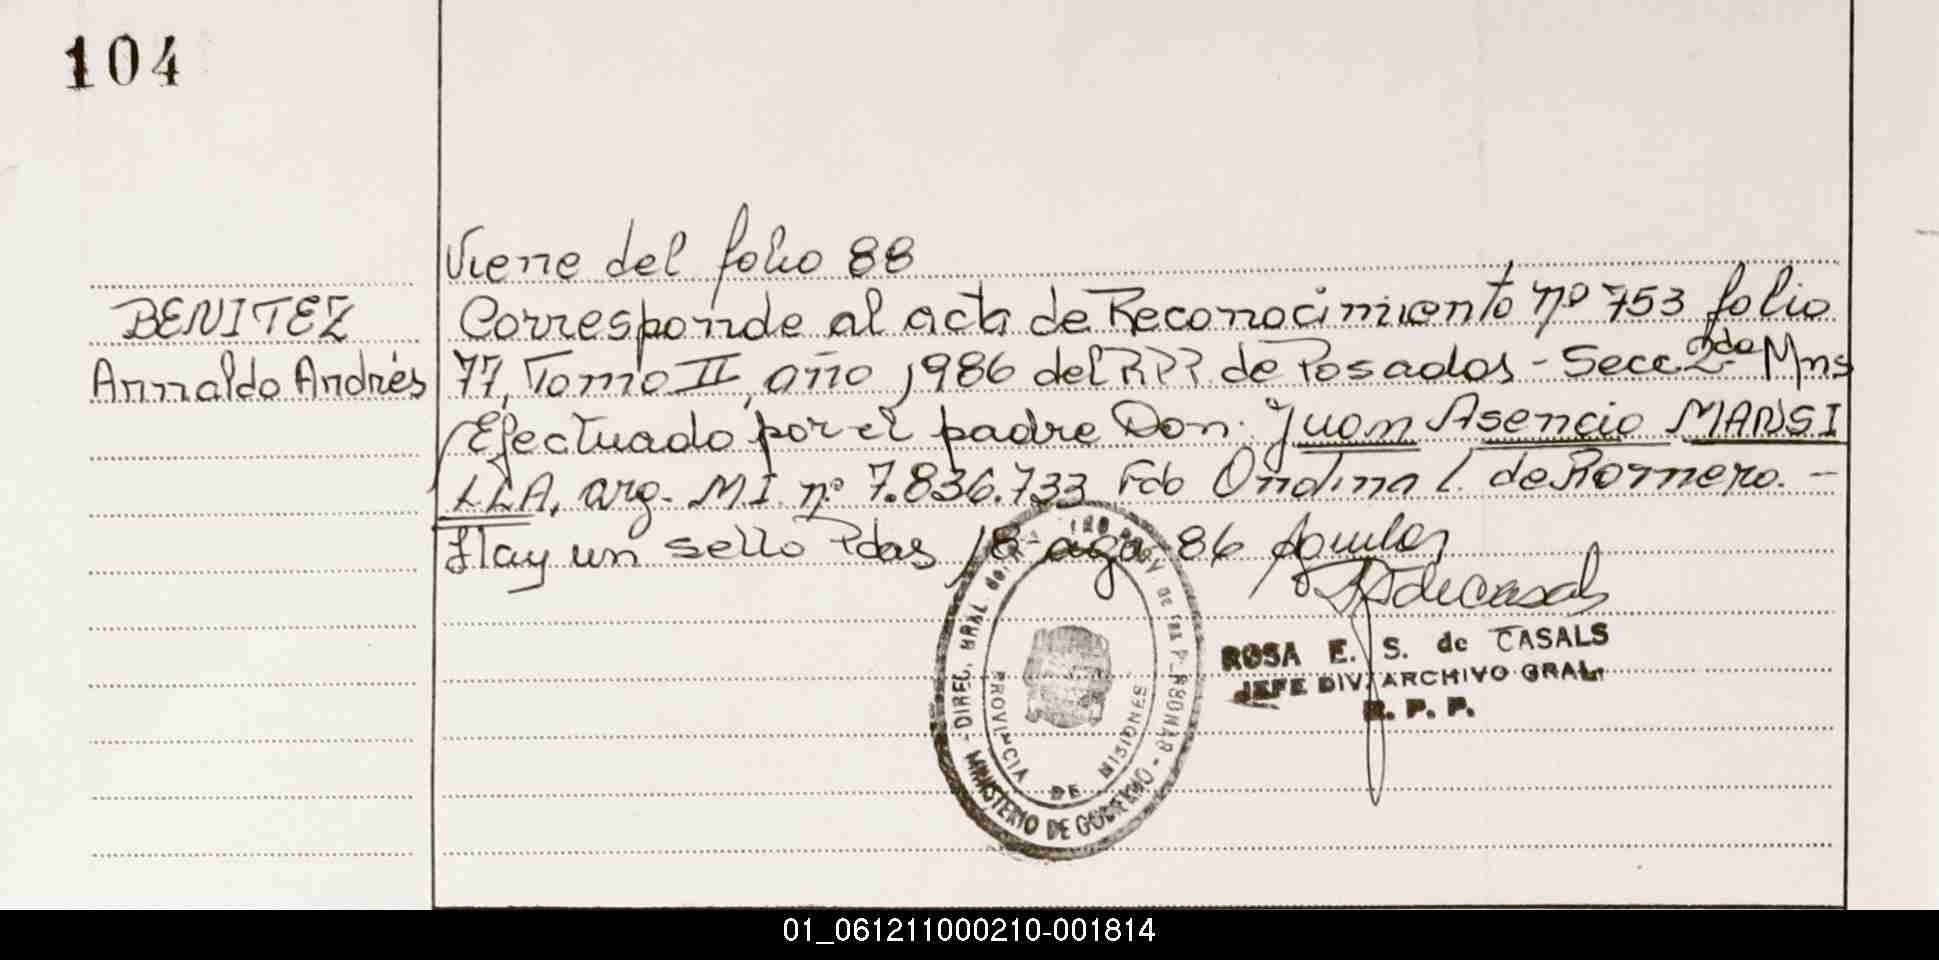 104
Viene del folio 88
BENITEZ
Corresponde al acta de Reconocimiento nº 753 folio
Arnaldo Andrés
77, Tomo II, año 1986 del RPP. de Posadas - Secc 2da Mns
Efectuado por el padre Don. Juan Asencio MANSI
LLA, arg. M.I. nº 7.836.733 Fdo Ondina L. de Romero. -
Hay un sello Pdas 18 - ago 86
ROSA E. S. de CASALS
JEFE DIV. ARCHIVO GRAL.
R. P. P.
DIREC. GRAL. de
DE LAS PERSONAS - MINISTERIO DE GOBIERNO -
PROVINCIA DE MISIONES
01_061211000210-001814